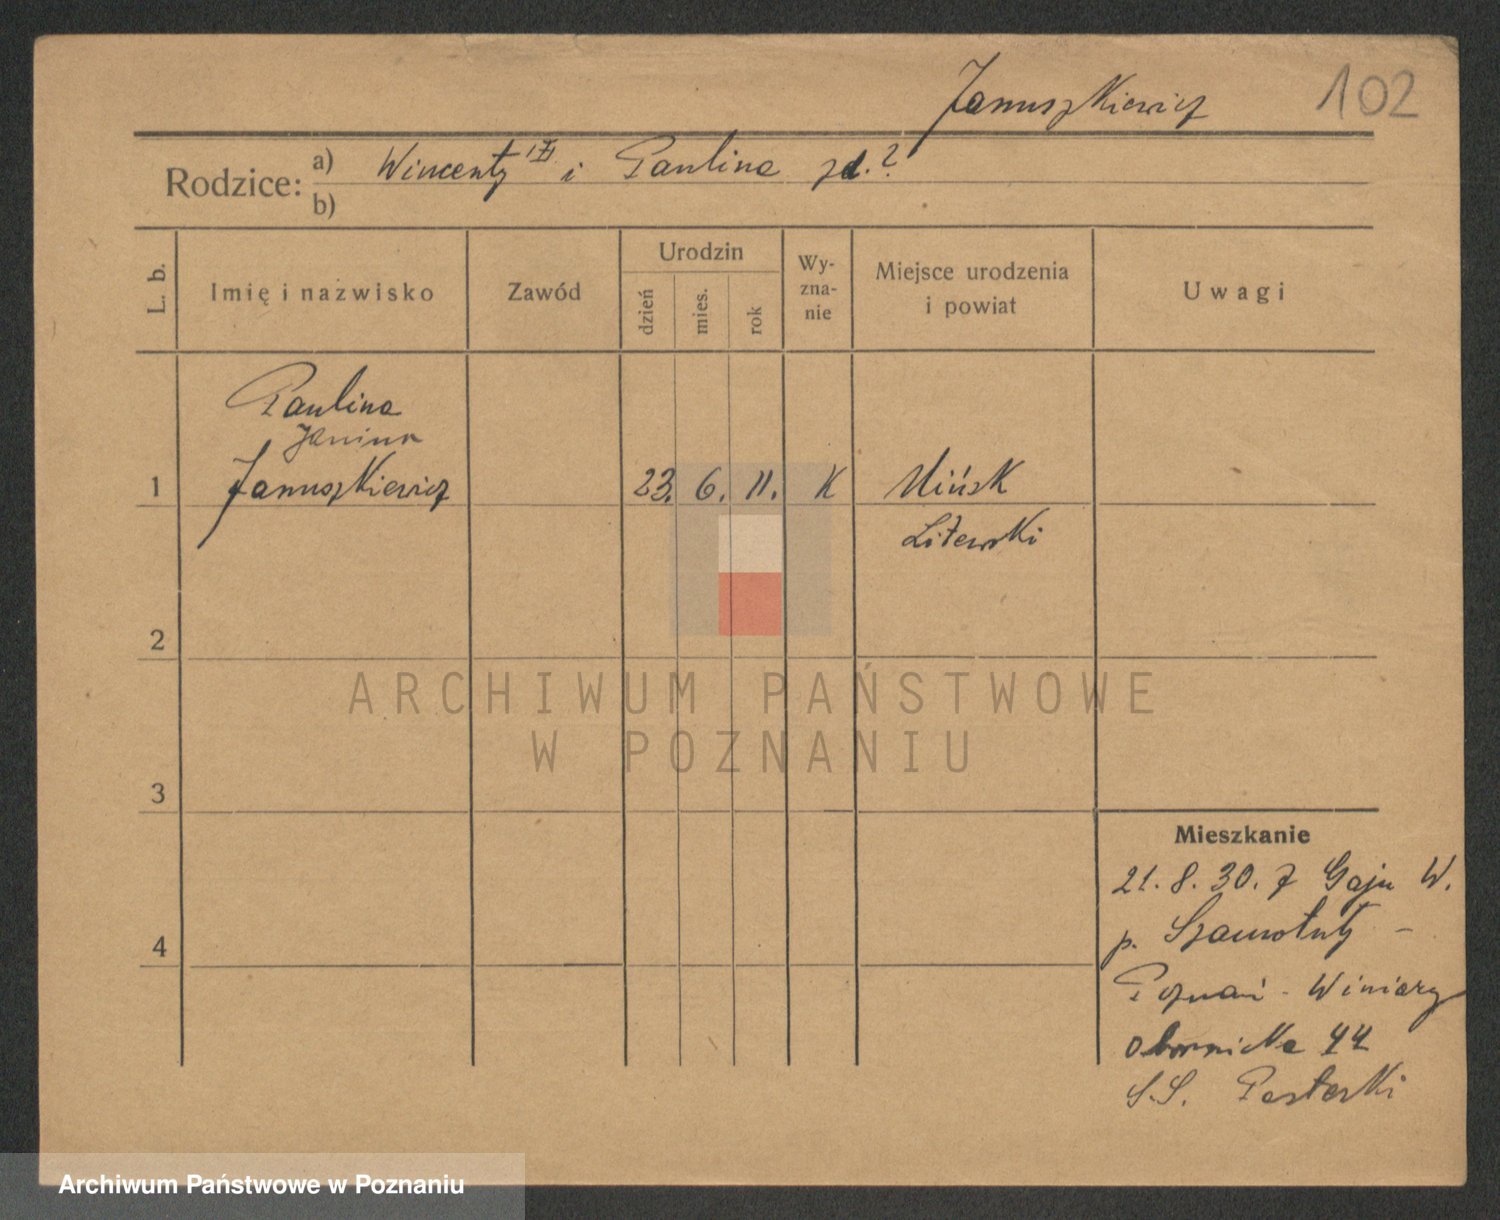 Januszkiewicz 102
Rodzice: a) Wincenty i Paulina zd.?
b)
L. b. Imię i nazwisko Zawód Urodzin dzień mies. rok Wy-zna-nie Miejsce urodzenia i powiat Uwagi
Paulina
Janina
1 Januszkiewicz 23. 6. 11. K Mińsk
Litewski
2
ARCHIWUM PAŃSTWOWE
W POZNANIU
3
Mieszkanie
21. 8. 30. z Gaju W.
4 p. Szamotuły -
Poznań - Winiary
Obornicka 44
S.S. Pasterki
Archiwum Państwowe w Poznaniu